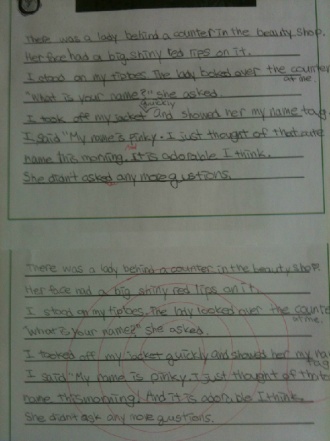 There was a lady behind a counter in the beauty shop.
Her face had a big shiny red lips on it.
I stood on my tiptoes. The lady looked over the counter
at me.
"What is your name?" she asked.
quickly
I took off my jacket and showed her my name tag.
I said "My name is pinky. I just thought of that cute
name this morning. It is adorable I think.
She didnt asked any more qustions.
There was a lady behind a counter in the beauty shop.
Her face had a big shiny red lips on it.
I stood on my tiptoes. The lady looked over the counter
at me.
"What is your name?" she asked.
I tooked off my jacket quickly and showed her my na
tag.
I said "My name is pinky. I just thought of this
name this morning! And it is adorable I think.
She didnt ask any more qustions.